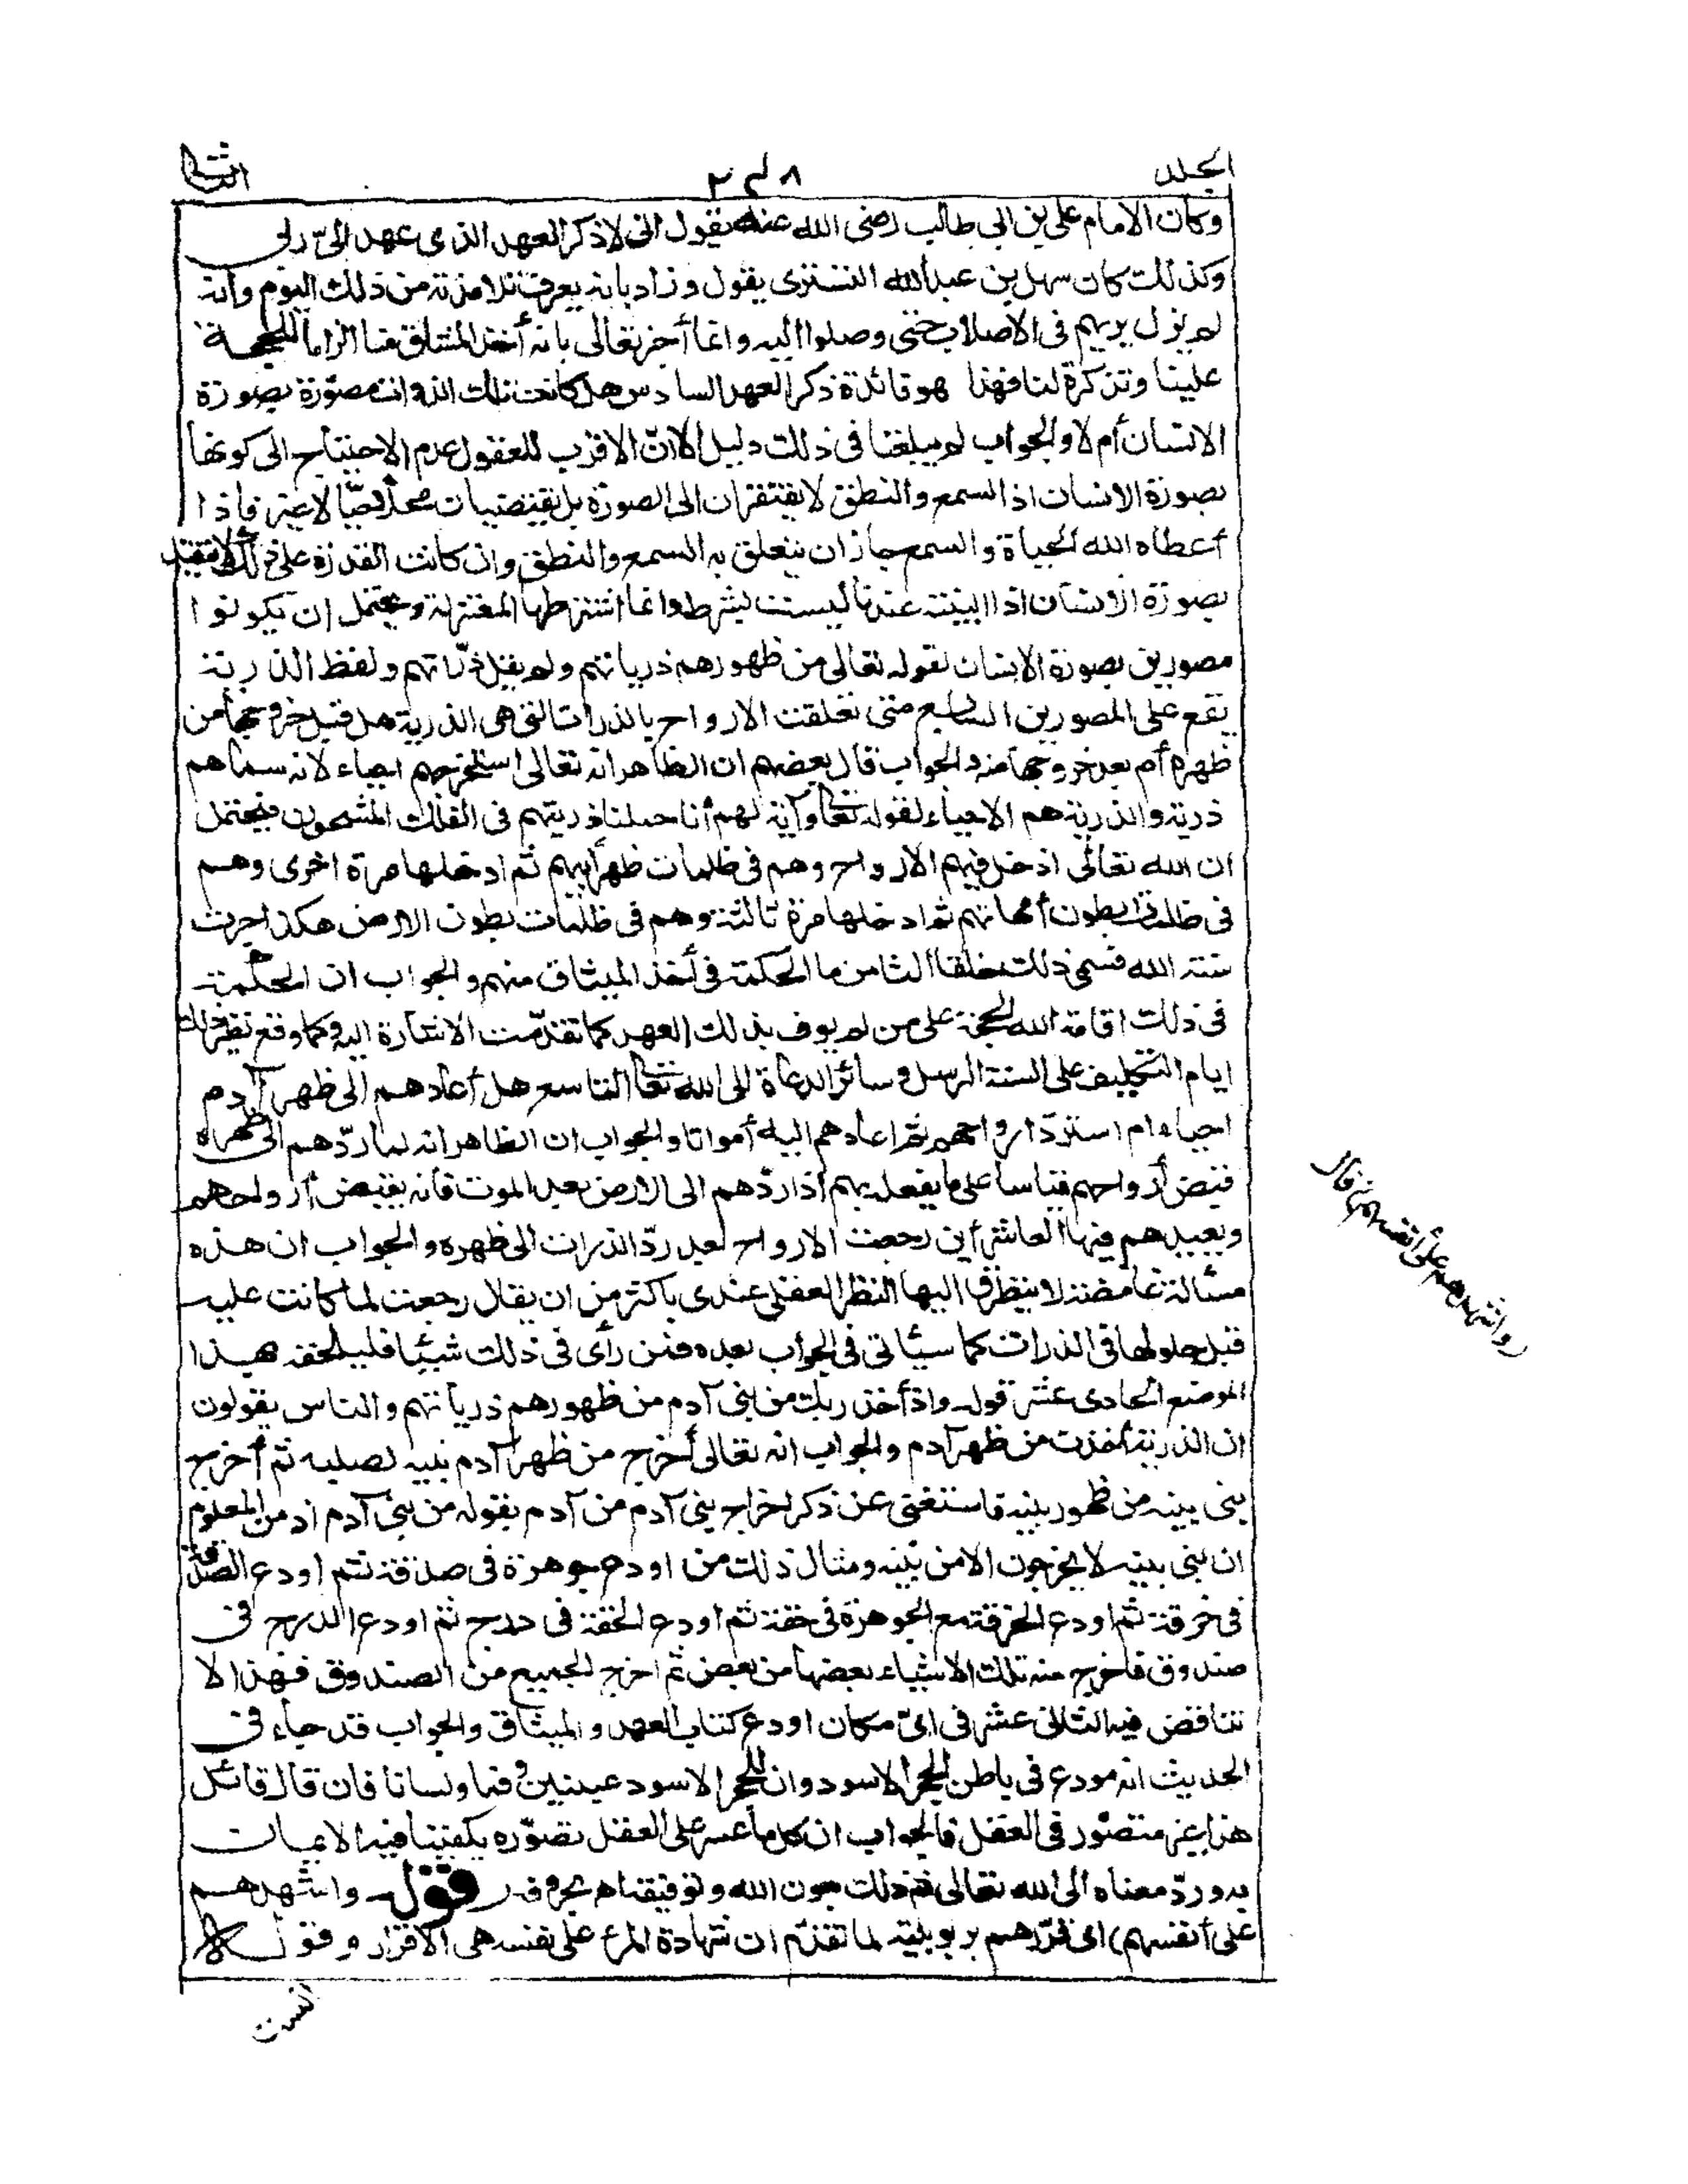 الجلد ٢٣٨ الثانى
وكان الامام على بن ابى طالب رضى الله عنه يقول انى لاذكر العهد الذى عهد الىّ ربى
وكذلك كان سهل بن عبد الله التسترى يقول وزاد بانه يعرف تلامذته من ذلك اليوم وانه
لم يزل يربيهم فى الاصلاب حتى وصلوا اليه وانما أخبر تعالى بانه أخذ الميثاق منا الزاما للحجة
علينا وتذكرة لنا فهذا هو فائدة ذكر العهد السادس هل كانت تلك الذوات مصوّرة بصورة
الانسان أم لا والجواب لم يبلغنا فى ذلك دليل الا انّ الاقرب للعقول عدم الاحتياج الى كونها
بصورة الانسان اذ السمع والنطق لا يفتقران الى الصورة بل يقتضيان محلا حيّا لا غير فاذا
أعطاه الله الحياة والسمع جاز ان يتعلق به السمع والنطق وان كانت القدرة على ذلك لا تتقيد
بصورة الانسان اذ البنية عندنا ليست بشرط وانما اشترطها المعتزلة ويحتمل ان يكونوا
مصورين بصورة الانسان لقوله تعالى من ظهورهم ذرياتهم ولم يقل ذرّاتهم ولفظ الذرية
يقع على المصورين السابع متى تعلقت الارواح بالذرات التى هى الذرية هل قبل خروجها من
ظهره أم بعد خروجها منه والجواب قال بعضهم ان الظاهر انه تعالى استخرجهم احياء لانه سماهم
ذرية والذرية هم الاحياء لقوله تعالى وآية لهم أنا حملنا ذريتهم فى الفلك المشحون فيحتمل
ان الله تعالى ادخل فيهم الارواح وهم فى ظلمات ظهر أبيهم ثم ادخلها مرة اخرى وهم
فى ظلمات بطون أمهاتهم ثم ادخلها مرة ثالثة وهم فى ظلمات بطون الارض هكذا جرت
سنة الله فسمى ذلك خلقا الثامن ما الحكمة فى أخذ الميثاق منهم والجواب ان الحكمة
فى ذلك اقامة الله الحجة على من لم يوف بذلك العهد كما تقدّمت الاشارة اليه وكما وقع نظير ذلك
ايام التكليف على السنة الرسل وسائر الدعاة الى الله تعالى التاسع هل أعادهم الى ظهر آدم
احياء ام استردّ ارواحهم ثم اعادهم اليه أمواتا والجواب ان الظاهر انه لما ردّهم الى ظهره
قبض أرواحهم قياسا على ما يفعله بهم اذا ردّهم الى الارض بعد الموت فانه يقبض أرواحهم
ويعيدهم فيها العاشر أين رجعت الارواح بعد ردّ الذرات الى ظهره والجواب ان هذه
مسألة غامضة لا يتطرق اليها النظر العقلى عندى باكثر من ان يقال رجعت لما كانت عليه
قبل حلولها فى الذرات كما سيأتى فى الجواب بعده فمن رأى فى ذلك شيئا فليلحقه هذا
الموضع الحادى عشر قوله واذ أخذ ربك من بنى آدم من ظهورهم ذرياتهم والناس يقولون
ان الذرية أخذت من ظهر آدم والجواب انه تعالى أخرج من ظهر آدم بنيه لصلبه ثم أخرج
بنى بنيه من ظهور بنيه فاستغنى عن ذكر اخراج بنى آدم من آدم بقوله من بنى آدم اذ من المعلوم
ان بنى بنيه لا يخرجون الا من بنيه ومثال ذلك من اودع جوهرة فى صدفة ثم اودع الصدفة
فى خرقة ثم اودع الخرقة مع الجوهرة فى حقة ثم اودع الحقة فى درج ثم اودع الدرج فى
صندوق فاخرج منه تلك الاشياء بعضها من بعض ثم اخرج الجميع من الصندوق فهذا لا
تناقض فيه الثانى عشر فى اىّ مكان اودع كتاب العهد والميثاق والجواب قد جاء فى
الحديث انه مودع فى باطن الحجر الاسود وان للحجر الاسود عينين وفما ولسانا فان قال قائل
هذا غير متصوّر فى العقل فالجواب ان كل ما عسر على العقل تصوّره يكفينا فيه الايمان
به وردّ معناه الى الله تعالى تم ذلك بعون الله وتوفيقه بحروفه (قوله واشهدهم
على أنفسهم) اى قرّرهم بربوبيته لما تقدّم ان شهادة المرء على نفسه هى الاقرار وقوله
(واشهدهم على أنفسهم قال
ألست